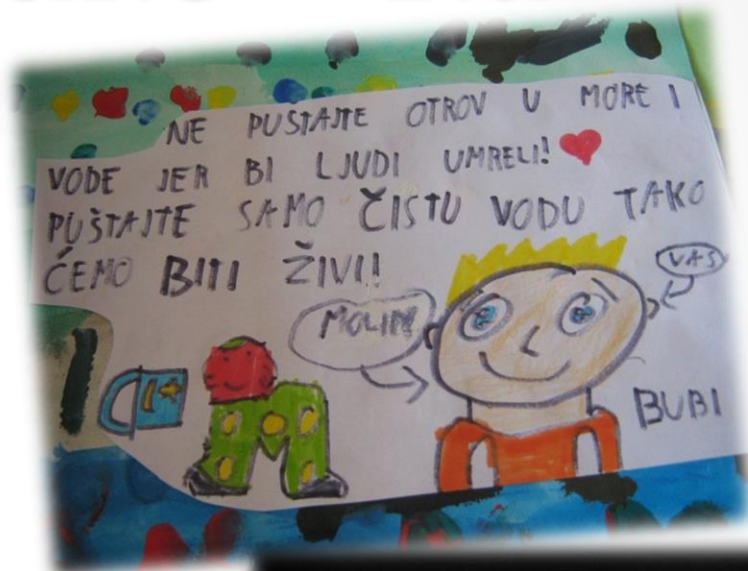 NE PUŠTAJTE OTROV U MORE I
VODE JER BI LJUDI UMRELI!
PUŠTAJTE SAMO ČISTU VODU TAKO
ĆEMO BITI ŽIVI!
VAS
MOLIM
BUBI